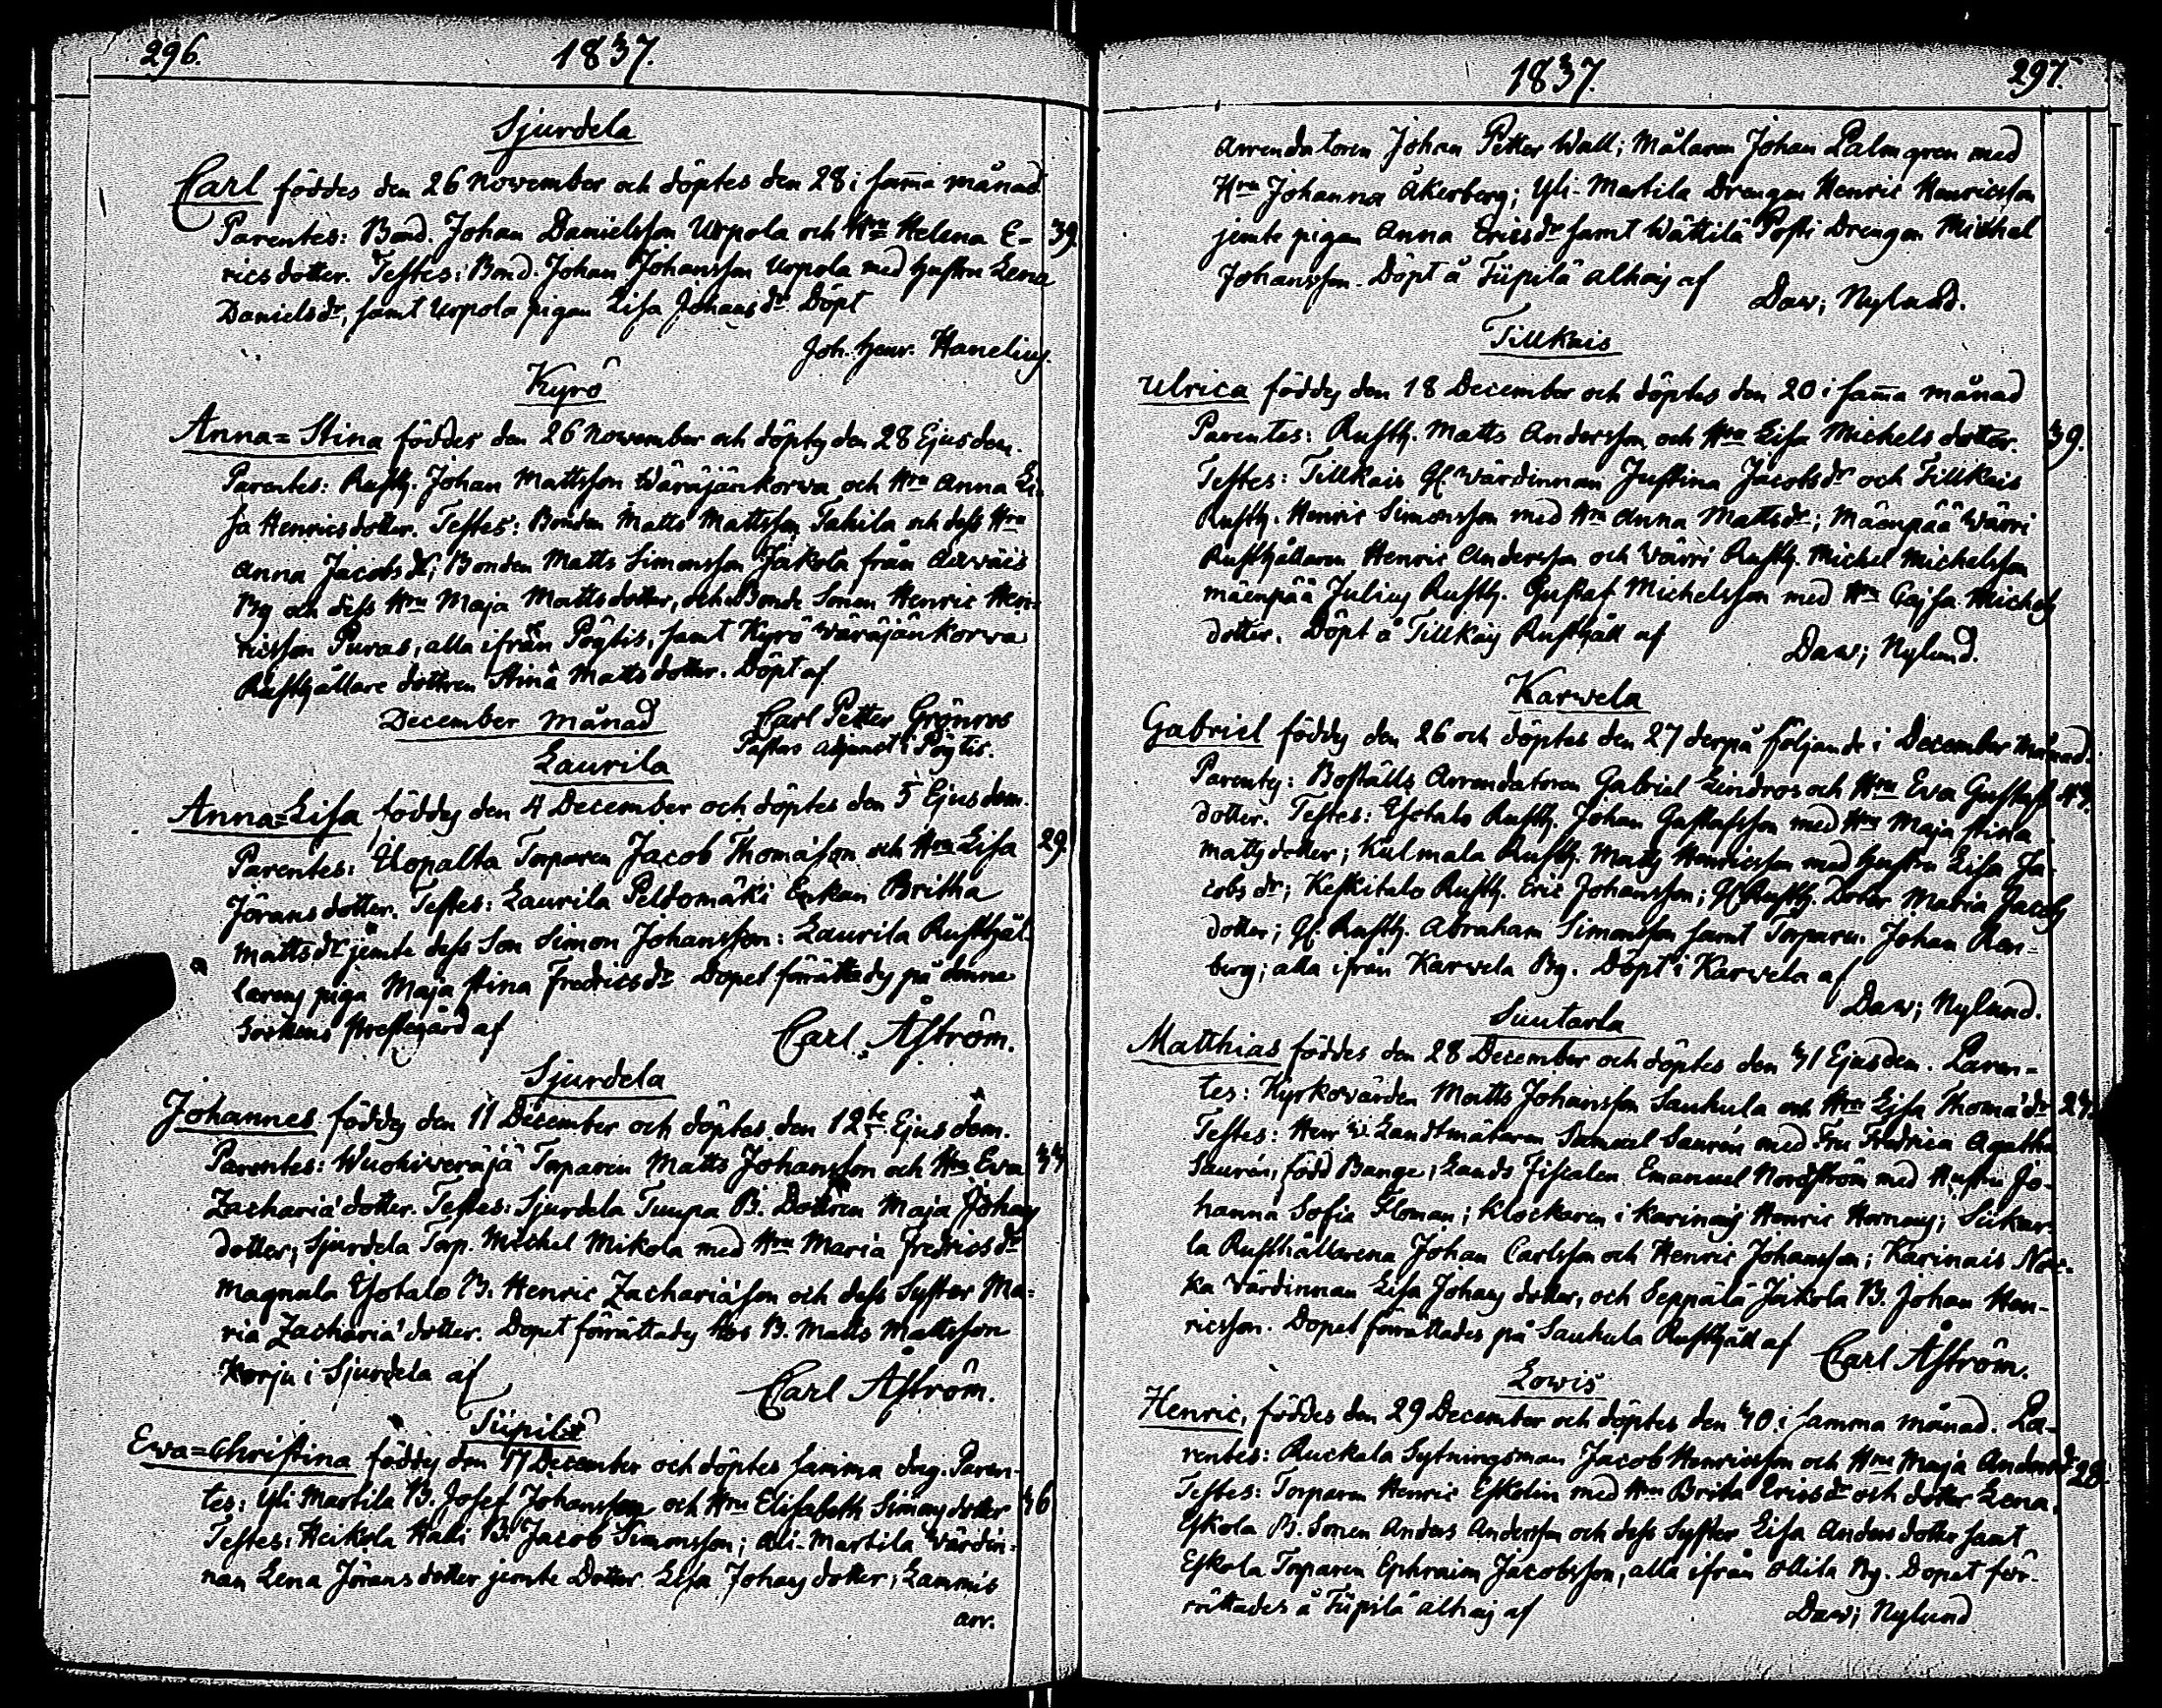 296.
1837.
Sjurdela
Carl föddes den 26 November och döptes den 28 i samma månad.
Parentes: Bond. Johan Danielsson Urpola och Hru Helena E- 39
ricsdotter. Testes: Bond. Johan Johansson Urpola med Hustru Lena
Danielsdr, samt Urpola pigan Lisa Johansdr. Döpt
Joh. Henr. Hanelius.
Kyrö
Anna=Stina föddes den 26 November och döptes den 28 Ejusdem.
Parentes: Rusth. Johan Mattsson Wäräjänkorwa och Hru Anna Li-
sa Henricsdotter. Testes: Bonden Matts Mattsson Tahila och dess Hru
Anna Jacobsdr; Bonden Matts Simonsson Jakola från
By och dess Hru Maja Mattsdotter, och Bonde Sonen Henric Hen-
ricsson Puras, alla ifrån Pöytis, samt Kyrö Wäräjänkorwa
Rusthållare dottren Stina Mattsdotter. Döpt af
Carl Petter Grönros
Pastors adjunct i Pöytis.
December månad
Laurila
Anna=Lisa föddes den 4 December och döptes den 5 Ejusdem.
Parentes: Torparen Jacob Thomasson och Hru Lisa 29
Jöransdotter. Testes: Laurila Peldomäki Enkan Britha
Mattsdr jemte dess Son Simon Johansson: Laurila Rusthål-
larens piga Maja Stina Fredricsdr. Dopet förrättades på denna
Sockens Prestegård af
Carl Åström.
Sjurdela
Johannes föddes den 11 December och döptes den 12te Ejusdem.
Parentes: Wuohiweräjä Torparen Matts Johansson och Hru Eva 33
Zacharia'dotter. Testes: Sjurdela Tuupa B. Dottren Maja Johans
dotter; Sjurdela Torp. Michel Mikola med Hru Maria Fredricsdr
Magnula Ylotalo B. Henric Zacharia'son och dess Syster Ma-
ria Zacharia'dotter. Dopet förrättades hos B. Matts Mattsson
Korju i Sjurdela af
Carl Åström.
Tüpilä
Ewa=Christina föddes den 17 December och döptes samma dag. Paren-
tes: Yli Martila B. Josef Johansson och Hru Elisabeth Simonsdotter 36
Testes: Heikola B. Jacob Simonsson; Ali-Martila wärdin-
nan Lena Jöransdotter jemte Dotter Lisa Johansdotter; Lammis
arr.
1837.
297.
Arrendatoren Johan Petter Wall; Målaren Johan Palmgren med
Hru Johanna Åkerberg; Yli-Martila Drengen Henric Henricsson
jemte pigan Anna Ericsdr samt Wättilä Posti Drengen Michel
Johansson. Döpt å Tüpilä alhaij af
Daw; Nylund.
Tillkais
Ulrica föddes den 18 December och döptes den 20 i samma månad
Parentes: Rusth. Matts Andersson och Hru Lisa Michelsdotter. 39.
Testes: Tillkais Gl. wärdinnan Justina Jacobsdr och Tillkais
Rusth. Henric Simonsson med Hru Anna Mattsdr; Mäenpää Wärri
Rusthållaren Henric Andersson och Wärri Rusth. Michel Michelsson
Mäenpää Julius Rusth. Gustaf Michelsson med Hru Cajsa Michels
dotter. Döpt å Tillkais Rusthåll af
Daw; Nylund.
Karwela
Gabriel föddes den 26 och döptes den 27 derpå följande i December månad.
Parentes: Boställs Arrendatoren Gabriel Lindros och Hru Eva Gustafs 43.
dotter. Testes: Rusth. Johan Gustafsson med Hru Maja Stina
Mattsdotter; Kulmala Rusth. Matts Henricsson med Hustru Lisa Ja-
cobsdr; Keskitalo Rusth. Eric Johansson; Gl Rusth. Dotter Maria Jacobs
dotter; Gl. Rusth. Abraham Simonsson samt Torparen Johan Ran-
berg; alla ifrån Karwela By. Döpt i Karwela af
Daw; Nylund.
Suutarla
Matthias föddes den 28 December och döptes den 31 Ejusdem. Paren-
tes: Kyrkovärden Matts Johansson Sauhula och Hru Lisa Thoma'dr 27.
Testes: Herr V. Landtmätaren Samuel Saurén med Fru Fredrica Agatha
Saurén, född Bange; Lands Fiscalen Emanuel Nordström med Hustru Jo-
hanna Sofia Floman; Klockaren i Karinais Henric Hornaeus;
la Rusthållarena Johan Carlsson och Henric Johansson; Karinais
ka Wärdinnan Lisa Johansdotter, och Seppälä Jakola B. Johan Hen-
ricsson. Dopet förrättades på Sauhula Rusthåll af
Carl Åström.
Lowis
Henric, föddes den 29 December och döptes den 30 i samma månad. Pa-
rentes: Ruckala Sytningsman Jacob Henricsson och Hru Maja Andersdr 28.
Testes: Torparen Henric Eskolin med Hru Brita Ericsdr och dotter Lena,
Eskola B. Sonen Anders Andersson och dess Syster Lisa Andersdotter samt
Eskola Torparen Ephraim Jacobsson, alla ifrån Ollila By. Dopet för-
rättades å Tüpilä alhaij af
Daw; Nylund